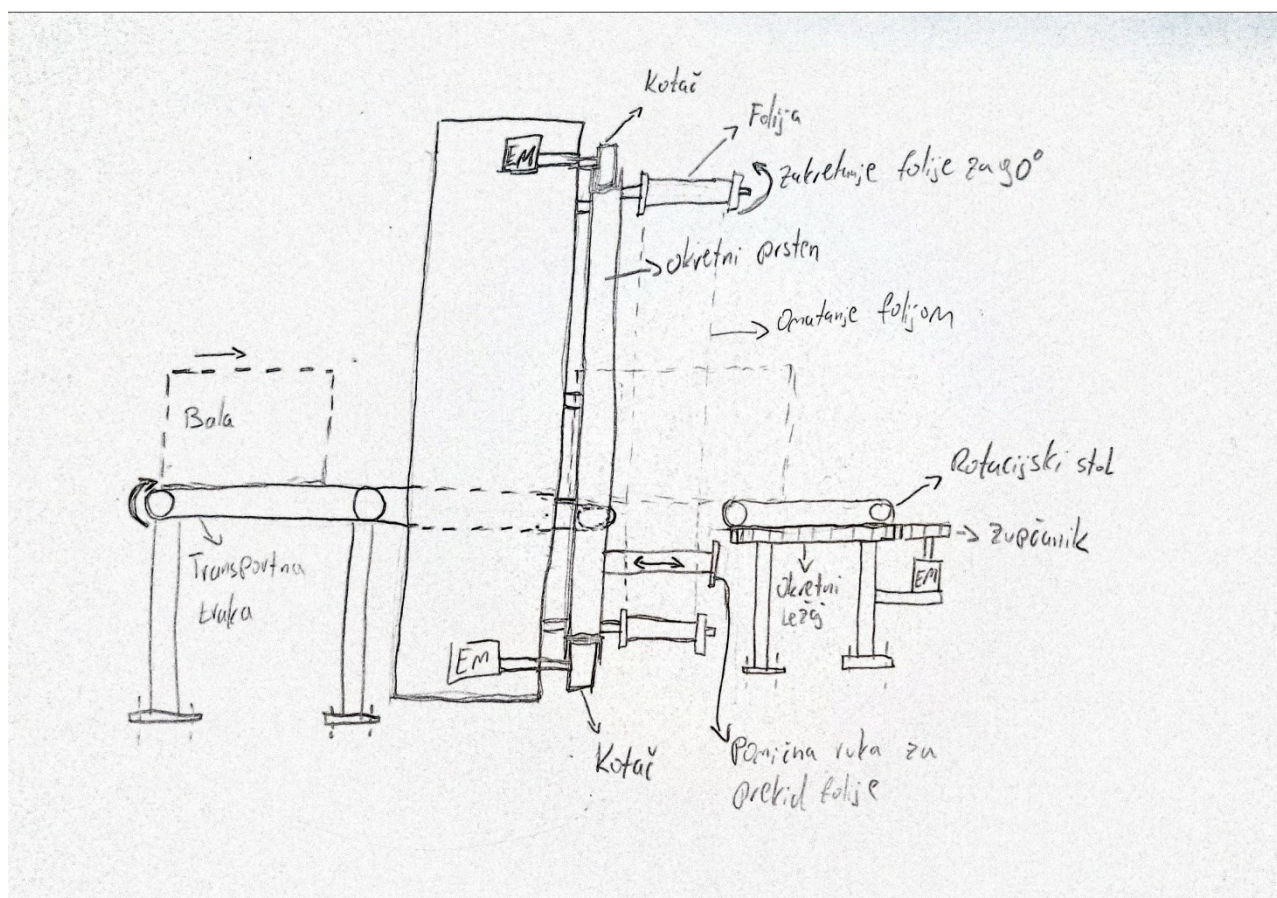 Kotač
Folija
EM
Zakretanje folije za 90°
Okretni prsten
Omatanje folijom
Bala
Rotacijski stol
Zupčanik
Transportna
traka
Okretni
Ležaj
EM
EM
Kotač
Pomična ruka za
prekid folije